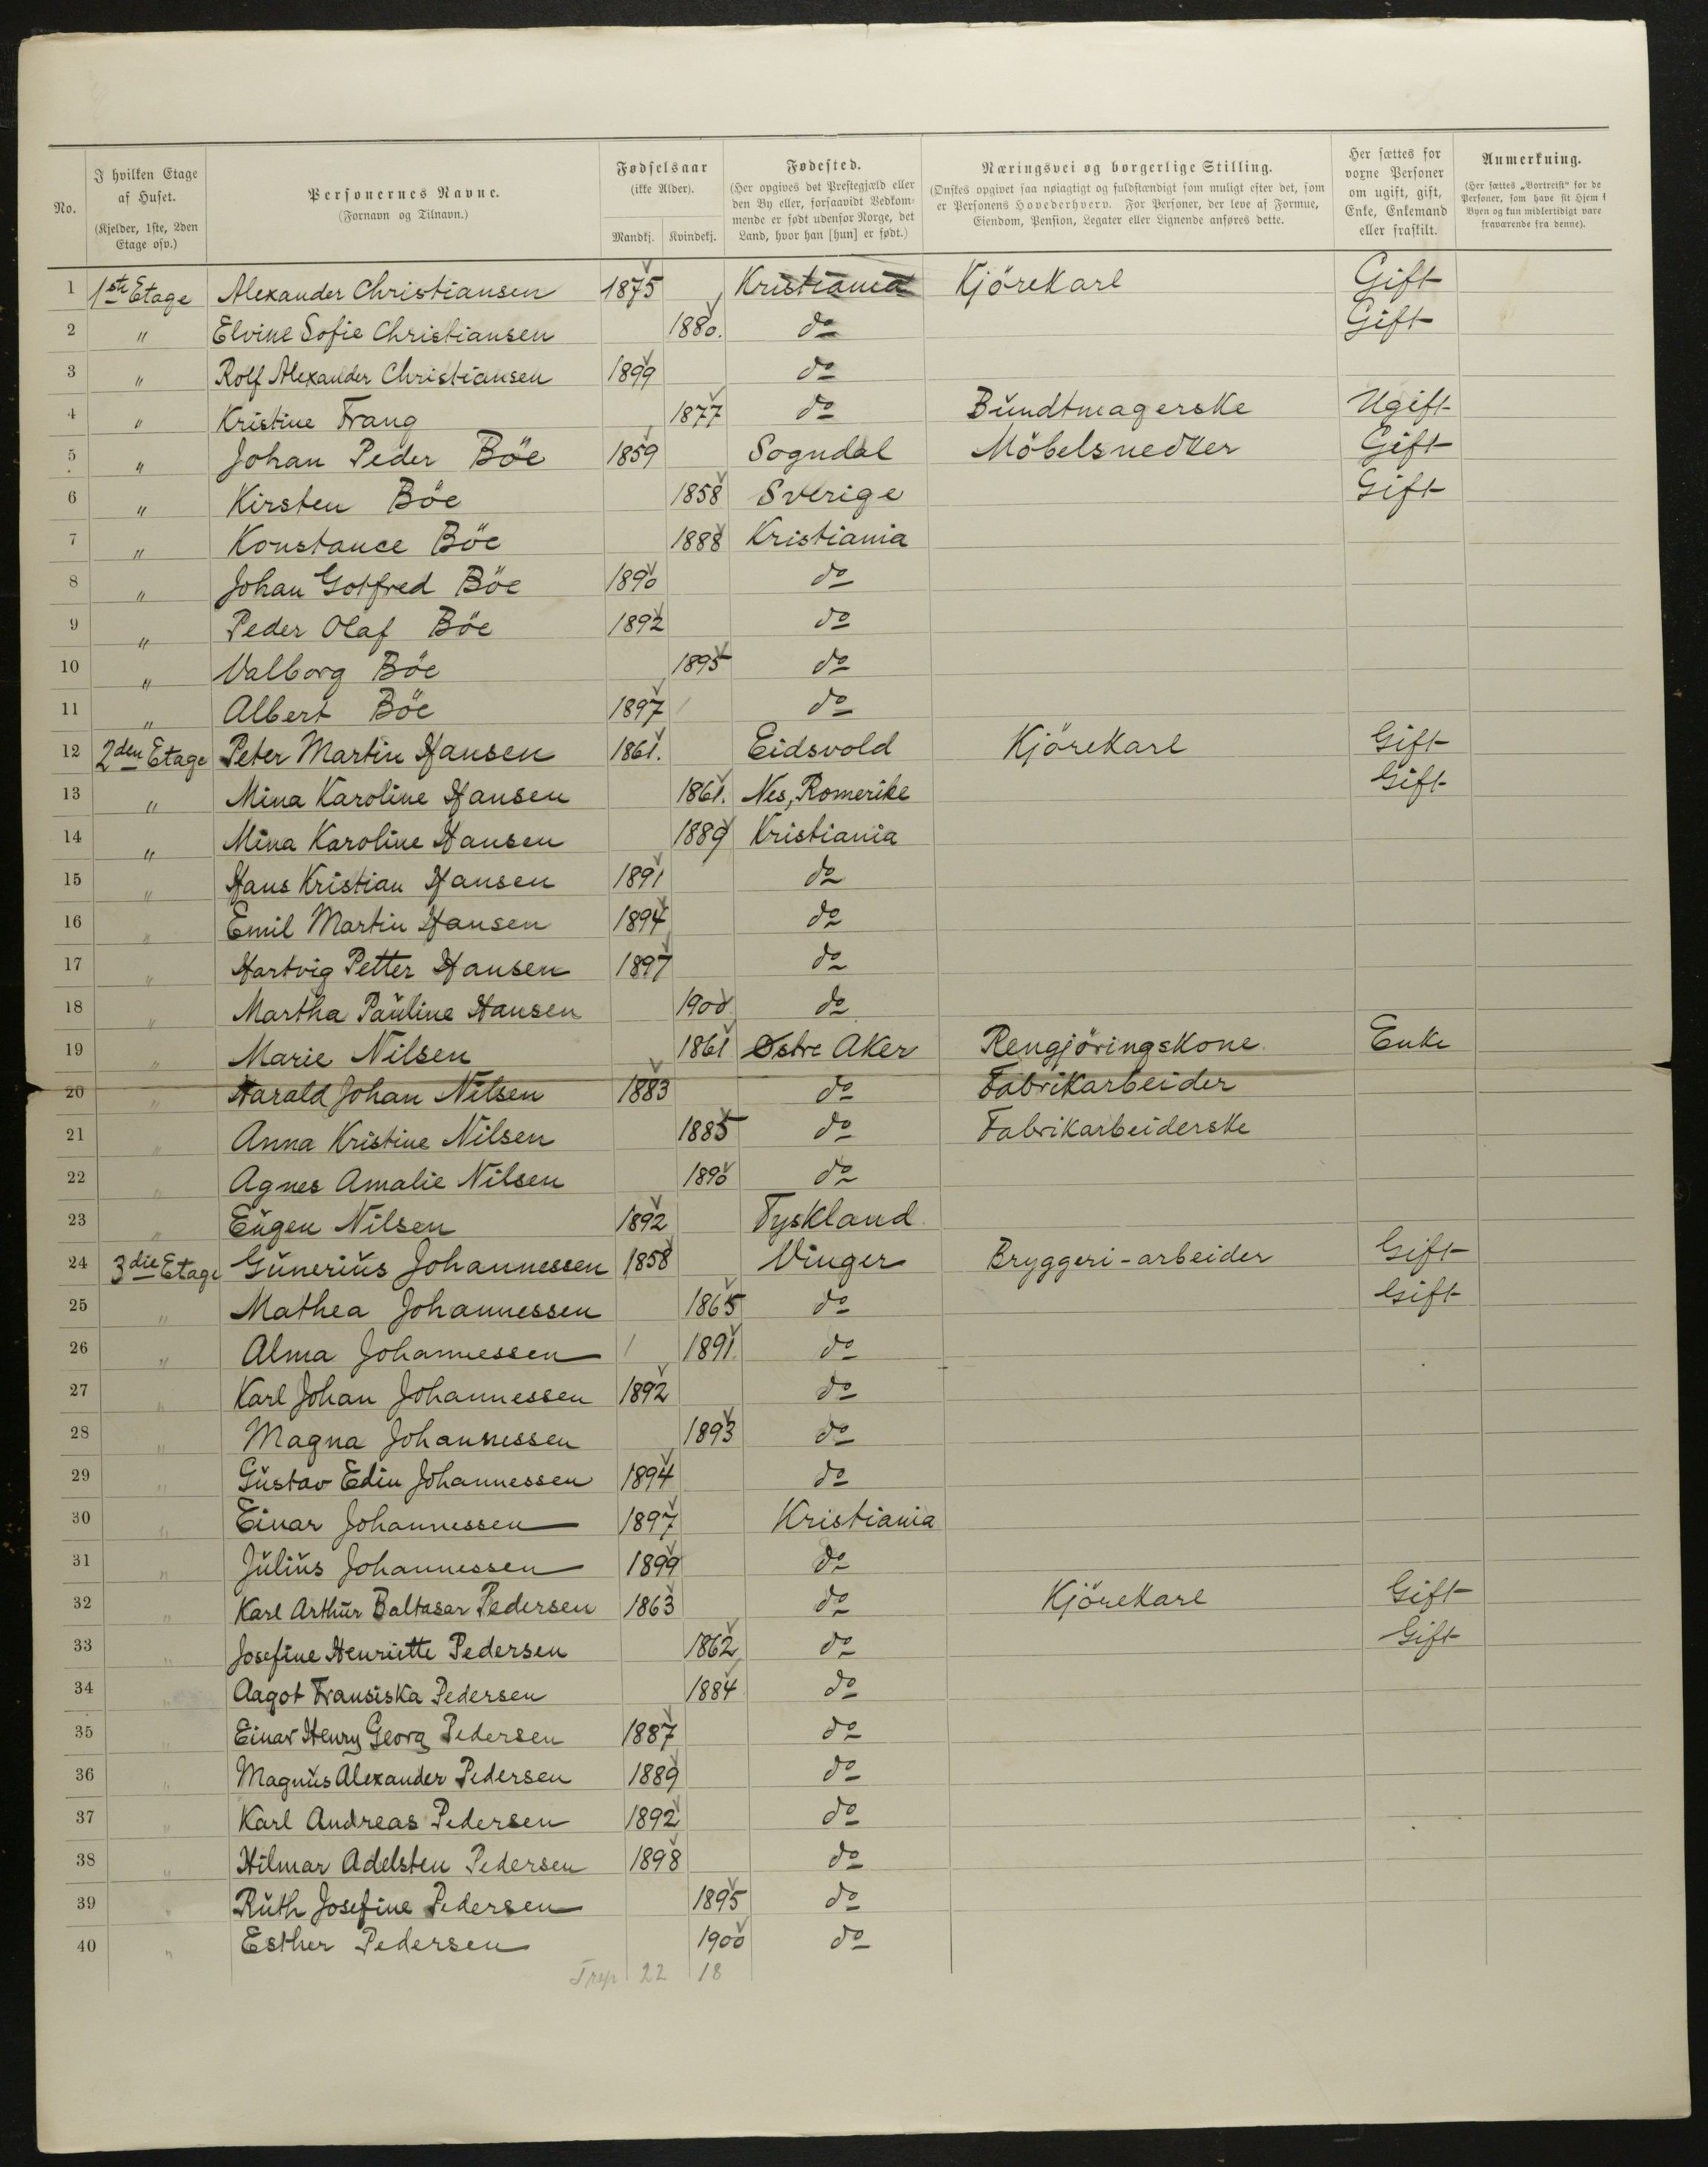 No.
I hvilken Etage af Huset. (Kjelder, 1ste, 2den Etage osv.)
Personernes Navne. (Fornavn og Tilnavn.)
Fødselsaar (ikke Alder). Mandkj. Kvindekj.
Fødested. (Her opgives det Prestegjæld eller den By eller, forsaavidt Vedkommende er født udenfor Norge, det Land, hvor han [hun] er født.)
Næringsvei og borgerlige Stilling. (Ønskes opgivet saa nøiagtigt og fuldstændigt som muligt efter det, som er Personens Hovederhverv. For Personer, der leve af Formue, Eiendom, Pension, Legater eller Lignende anføres dette.)
Her sættes for voxne Personer om ugift, gift, Enke, Enkemand eller fraskilt.
Anmerkning. (Her sættes „Bortreist" for de Personer, som have sit Hjem i Byen og kun midlertidigt vare fraværende fra denne).
1 1ste Etage Alexander Christiansen 1875 Kristiania Kjörekarl Gift
2 " Elvine Sofie Christiansen 1880. do Gift
3 " Rolf Alexander Christiansen 1899 do
4 " Kristine Frang 1877 do Bundtmagerske Ugift
5 " Johan Peder Böe 1859 Sogndal Möbelsnedker Gift
6 " Kirsten Böe 1858 Sverige Gift
7 " Konstance Böe 1888 Kristiania
8 " Johan Gotfred Böe 1890 do
9 " Peder Olaf Böe 1892 do
10 " Valborg Böe 1895 do
11 " Albert Böe 1897 do
12 2den Etage Peter Martin Hansen 1861. Eidsvold Kjörekarl Gift
13 " Mina Karoline Hansen 1861. Nes, Romerike Gift
14 " Mina Karoline Hansen 1889 Kristiania
15 " Hans Kristian Hansen 1891 do
16 " Emil Martin Hansen 1894 do
17 " Hartvig Petter Hansen 1897 do
18 " Martha Pauline Hansen 1900 do
19 " Marie Nilsen 1861 Østre Aker Rengjöringskone Enke
20 " Harald Johan Nilsen 1883 do Fabrikarbeider
21 " Anna Kristine Nilsen 1885 do Fabrikarbeiderske
22 " Agnes Amalie Nilsen 1890 do
23 " Eugen Nilsen 1892 Tyskland
24 3die Etage Gunerius Johannessen 1858 Vinger Bryggeri-arbeider Gift
25 " Mathea Johannessen 1865 do Gift
26 " Alma Johannessen 1891 do
27 " Karl Johan Johannessen 1892 do
28 " Magna Johannessen 1893 do
29 " Gustav Edin Johannessen 1894 do
30 " Einar Johannessen 1897 Kristiania
31 " Julius Johannessen 1899 do
32 " Karl Arthur Baltasar Pedersen 1863 do Kjörekarl Gift
33 " Josefine Henriette Pedersen 1862 do Gift
34 " Aagot Fransiska Pedersen 1884 do
35 " Einar Henry Georg Pedersen 1887 do
36 " Magnus Alexander Pedersen 1889 do
37 " Karl Andreas Pedersen 1892 do
38 " Hilmar Adelsten Pedersen 1898 do
39 " Ruth Josefine Pedersen 1895 do
40 " Esther Pedersen 1900 do
22 18